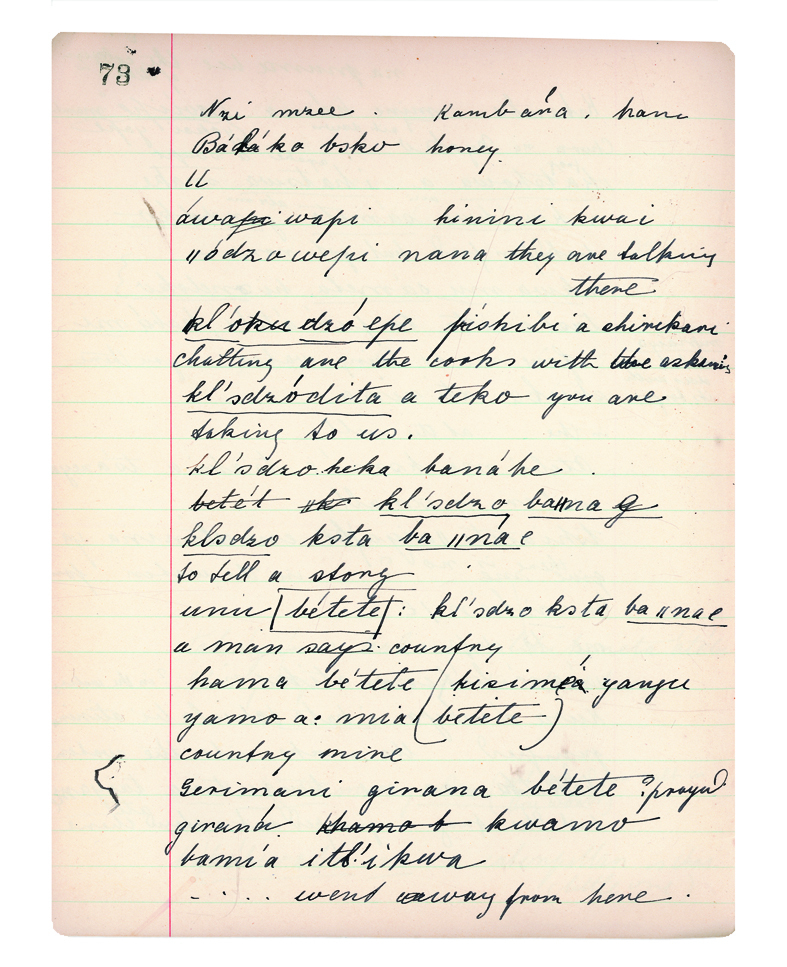 73
Nzi mzee. Kambána. hani
Báláko bsko honey.
ʟʟ
áwa wapi hinini kwai
ıı ódzowepi nana they are talking
there
kl'óku dzó epe físhibi a shirikari
chatting are the cooks with askaris
kl'sdzódita a teko you are
taking to us.
kl'sdzo.heka banáhe.
betét kl'sdzo baıına
klsdzo ksta baıınáe
to tell a story
unu [bétete]: kl'sdzo ksta baıınae
a man says. country
hama bétete (kisima yangu
yamo a: mia betete)
country mine
Gerimani girana bétete ?
giraná khamo b kwamó
bamía itl'íkwa
..... went away from here.